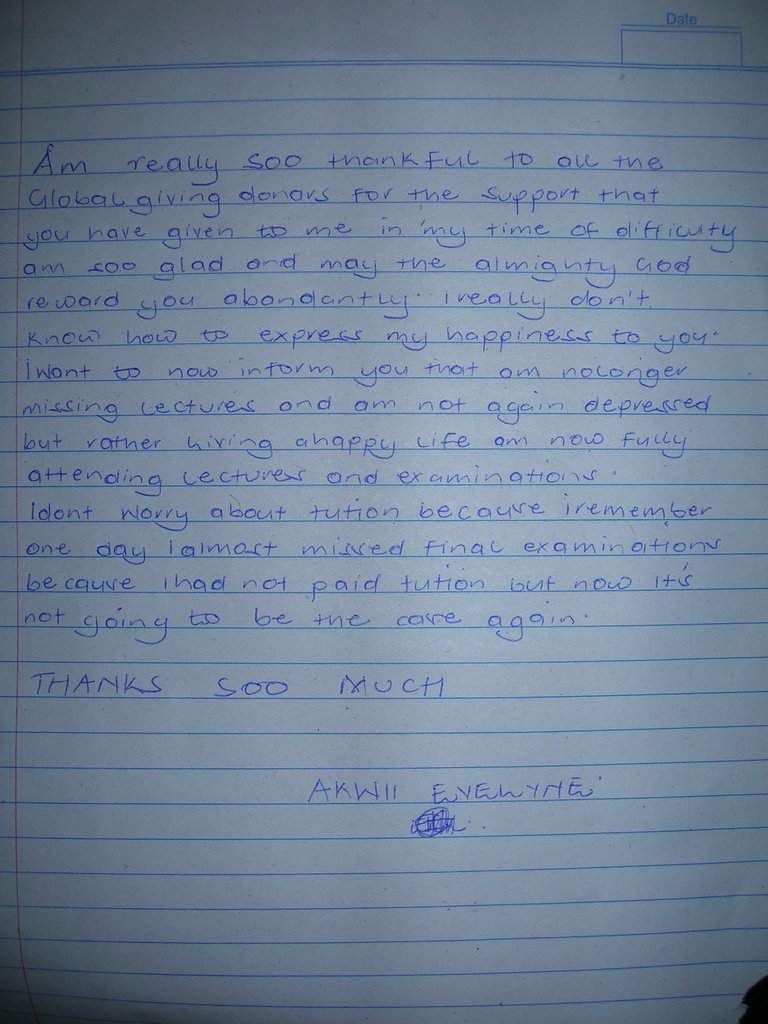 Date
Am really soo thankful to all the
Global giving donors for the support that
you have given to me in my time of difficuty
am soo glad and may the almighty God
reward you abondantly. ireally don't
know how to express my happiness to you.
iwant to now inform you that am nolonger
missing lectures and am not again depressed
but rather living ahappy life am now fully
attending lectures and examinations.
Idont worry about tution because iremember
one day ialmost missed final examinations
because ihad not paid tution but now it's
not going to be the case again.
THANKS SOO MUCH
AKWII EVELYNE